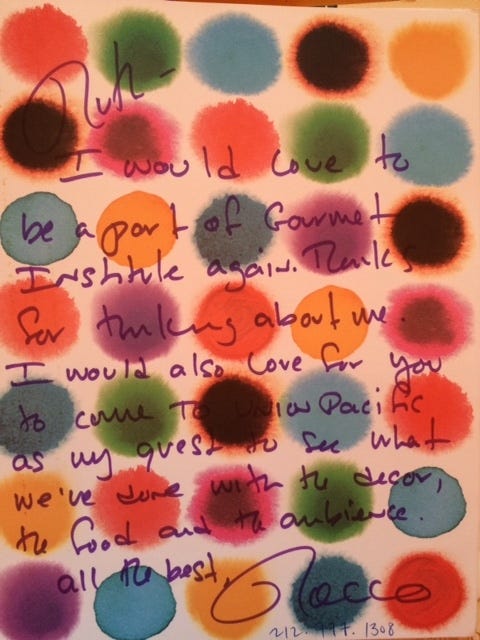 Ruth -
I would love to
be a part of Gourmet
Institute again. Thanks
for thinking about me.
I would also love for you
to come to Union Pacific
as my guest to see what
we've done with the decor,
the food and the ambience.
all the best,
Rocco
212.997.1308